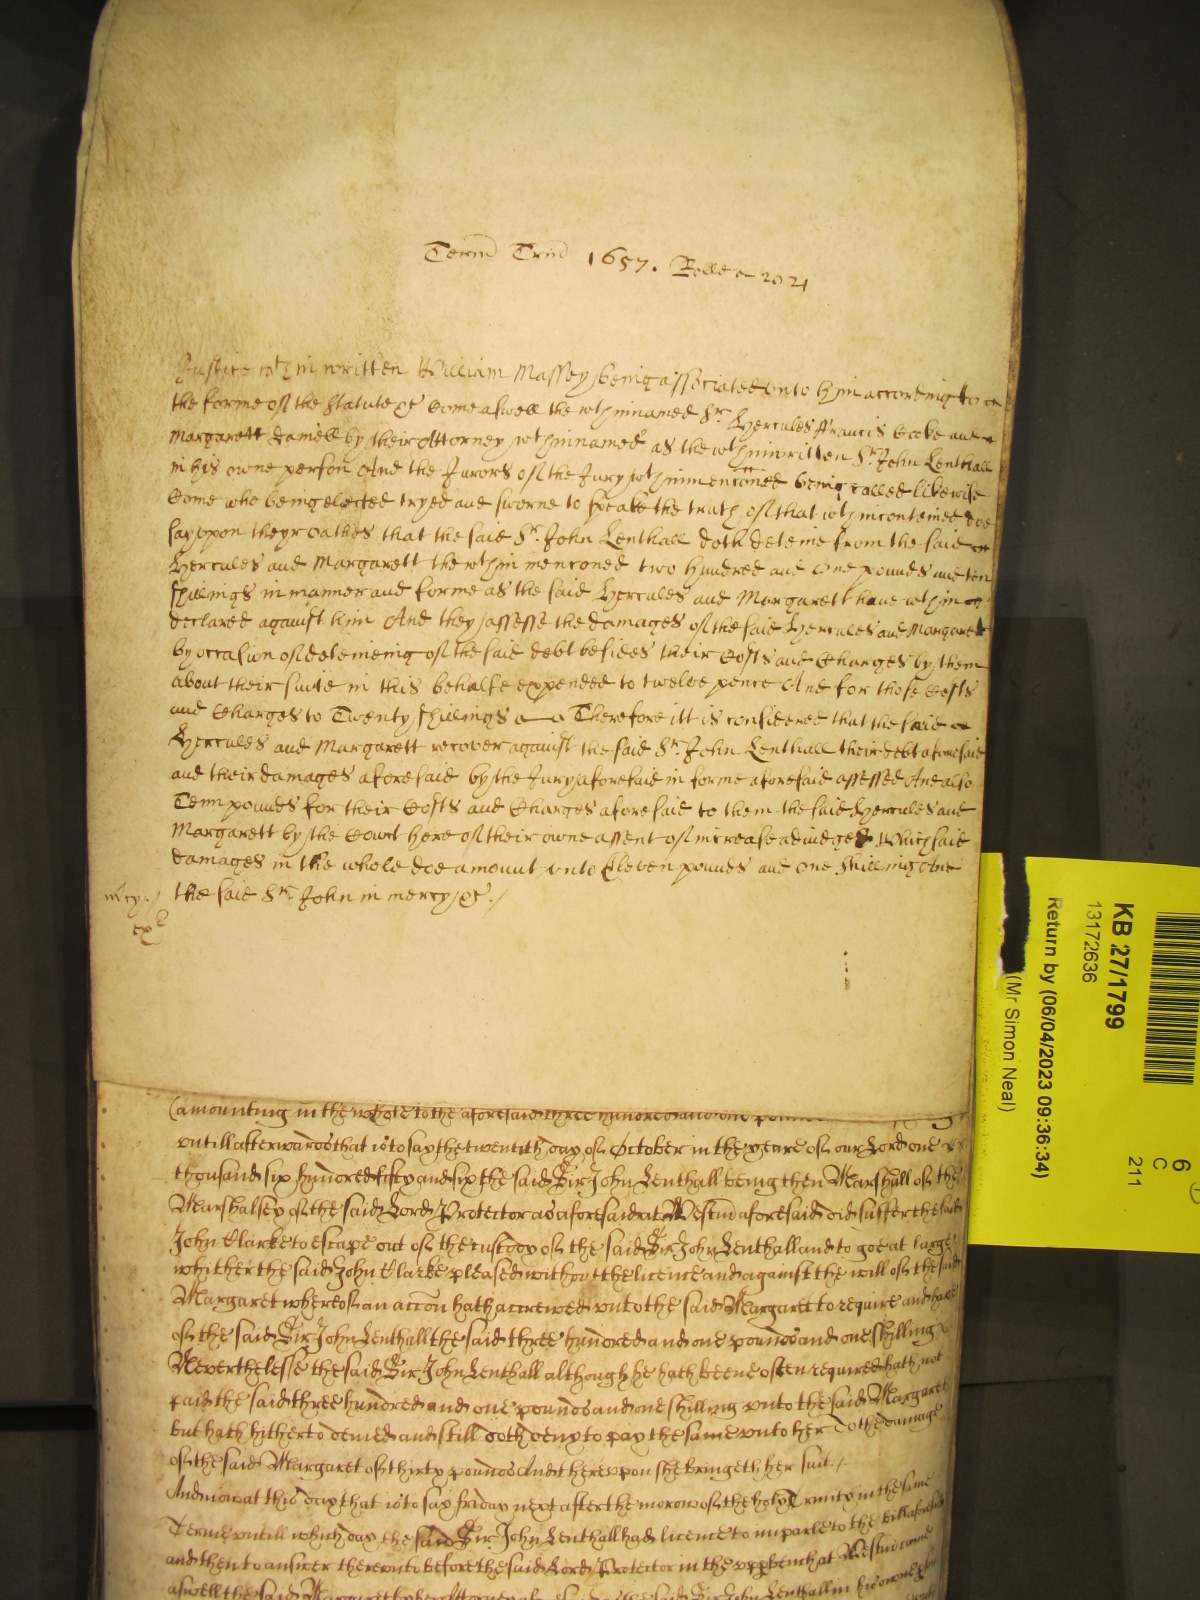 Term Trin 1657. Rolle 2021
Justice wthin written William Massey being associated unto him according to
the forme of the Statute &c Come aswell the wthinnamed Sr Hercules ffrancis Cooke and
Margarett Daniell by their Attorney wthinnamed as the wthinwritten Sr John Lenthall
in his owne person And the Jurors of the Jury wthinmenconed being called likewise
Come who being elected tryed and sworne to speake the truth of that wthinconteined doe
say upon theyr oathes that the said Sr John Lenthall doth deteine from the said
Hercules and Margarett the wthin menconed two hundred and One pounds and ten
shillings in manner and forme as the said Hercules and Margarett have wthin
declared against him And they assesse the damages of the said Hercules and Margarett
by occasion of deteineing of the said debt besides their Costs and Charges by them
about their suite in this behalfe expended to twelve pence And for those Costs
and Charges to Twenty shillings Therefore itt is considered that the said
Hercules and Margarett recover against the said Sr John Lenthall their debt aforesaid
and their damages aforesaid by the Jury aforesaid in forme aforesaid assessed And also
Tenn pounds for their Costs and Charges aforesaid to them the said Hercules and
Margarett by the Court here of their owne assent of increase adiudged Which said
damages in the whole doe amount unto Eleven pounds and one shilling And
mcy. the said Sr John in mercy &c.
(amounting in the whole to the aforesaid three hundred and one
untill afterwards that is to say the twentith day of October in the yeare of our Lord one
thousand six hundred fifty and six the said Sir John Lenthall being then Marshall of the
Marshalsey of the said Lord Protector as aforesaid att Westm aforesaid did suffer the said
John Clarke to escape out of the custody of the said Sir John Lenthall and to goe at large
whither the said John Clarke pleased without the licence and against the will of the said
Margaret whereof an accon hath accrewed unto the said Margaret to require and have
of the said Sir John Lenthall the said three hundred and one pounds and one shilling
Neverthelesse the said Sir John Lenthall although he hath beene often required hath not
paid the said three hundred and one pounds and one shilling unto the said Margaret
but hath hitherto denied and still doth deny to pay the same unto her To the damage
of the said Margaret of thirty pounds And thereupon she bringeth her suit.
And now at this day that is to say friday next after the morow of the holy Trinity in the same
Terme untill which day the said Sir John Lenthall had licence to imparle to the bill aforesaid
and then to answer thereunto before the said Lord Protector in the upper bench at Westm come
aswell the said Margaret by her Attorney the said Sir John Lenthall in his owne
KB 27/1799
13172636
Return by (06/04/2023 09:36:34)
(Mr Simon Neal)
6
C
211